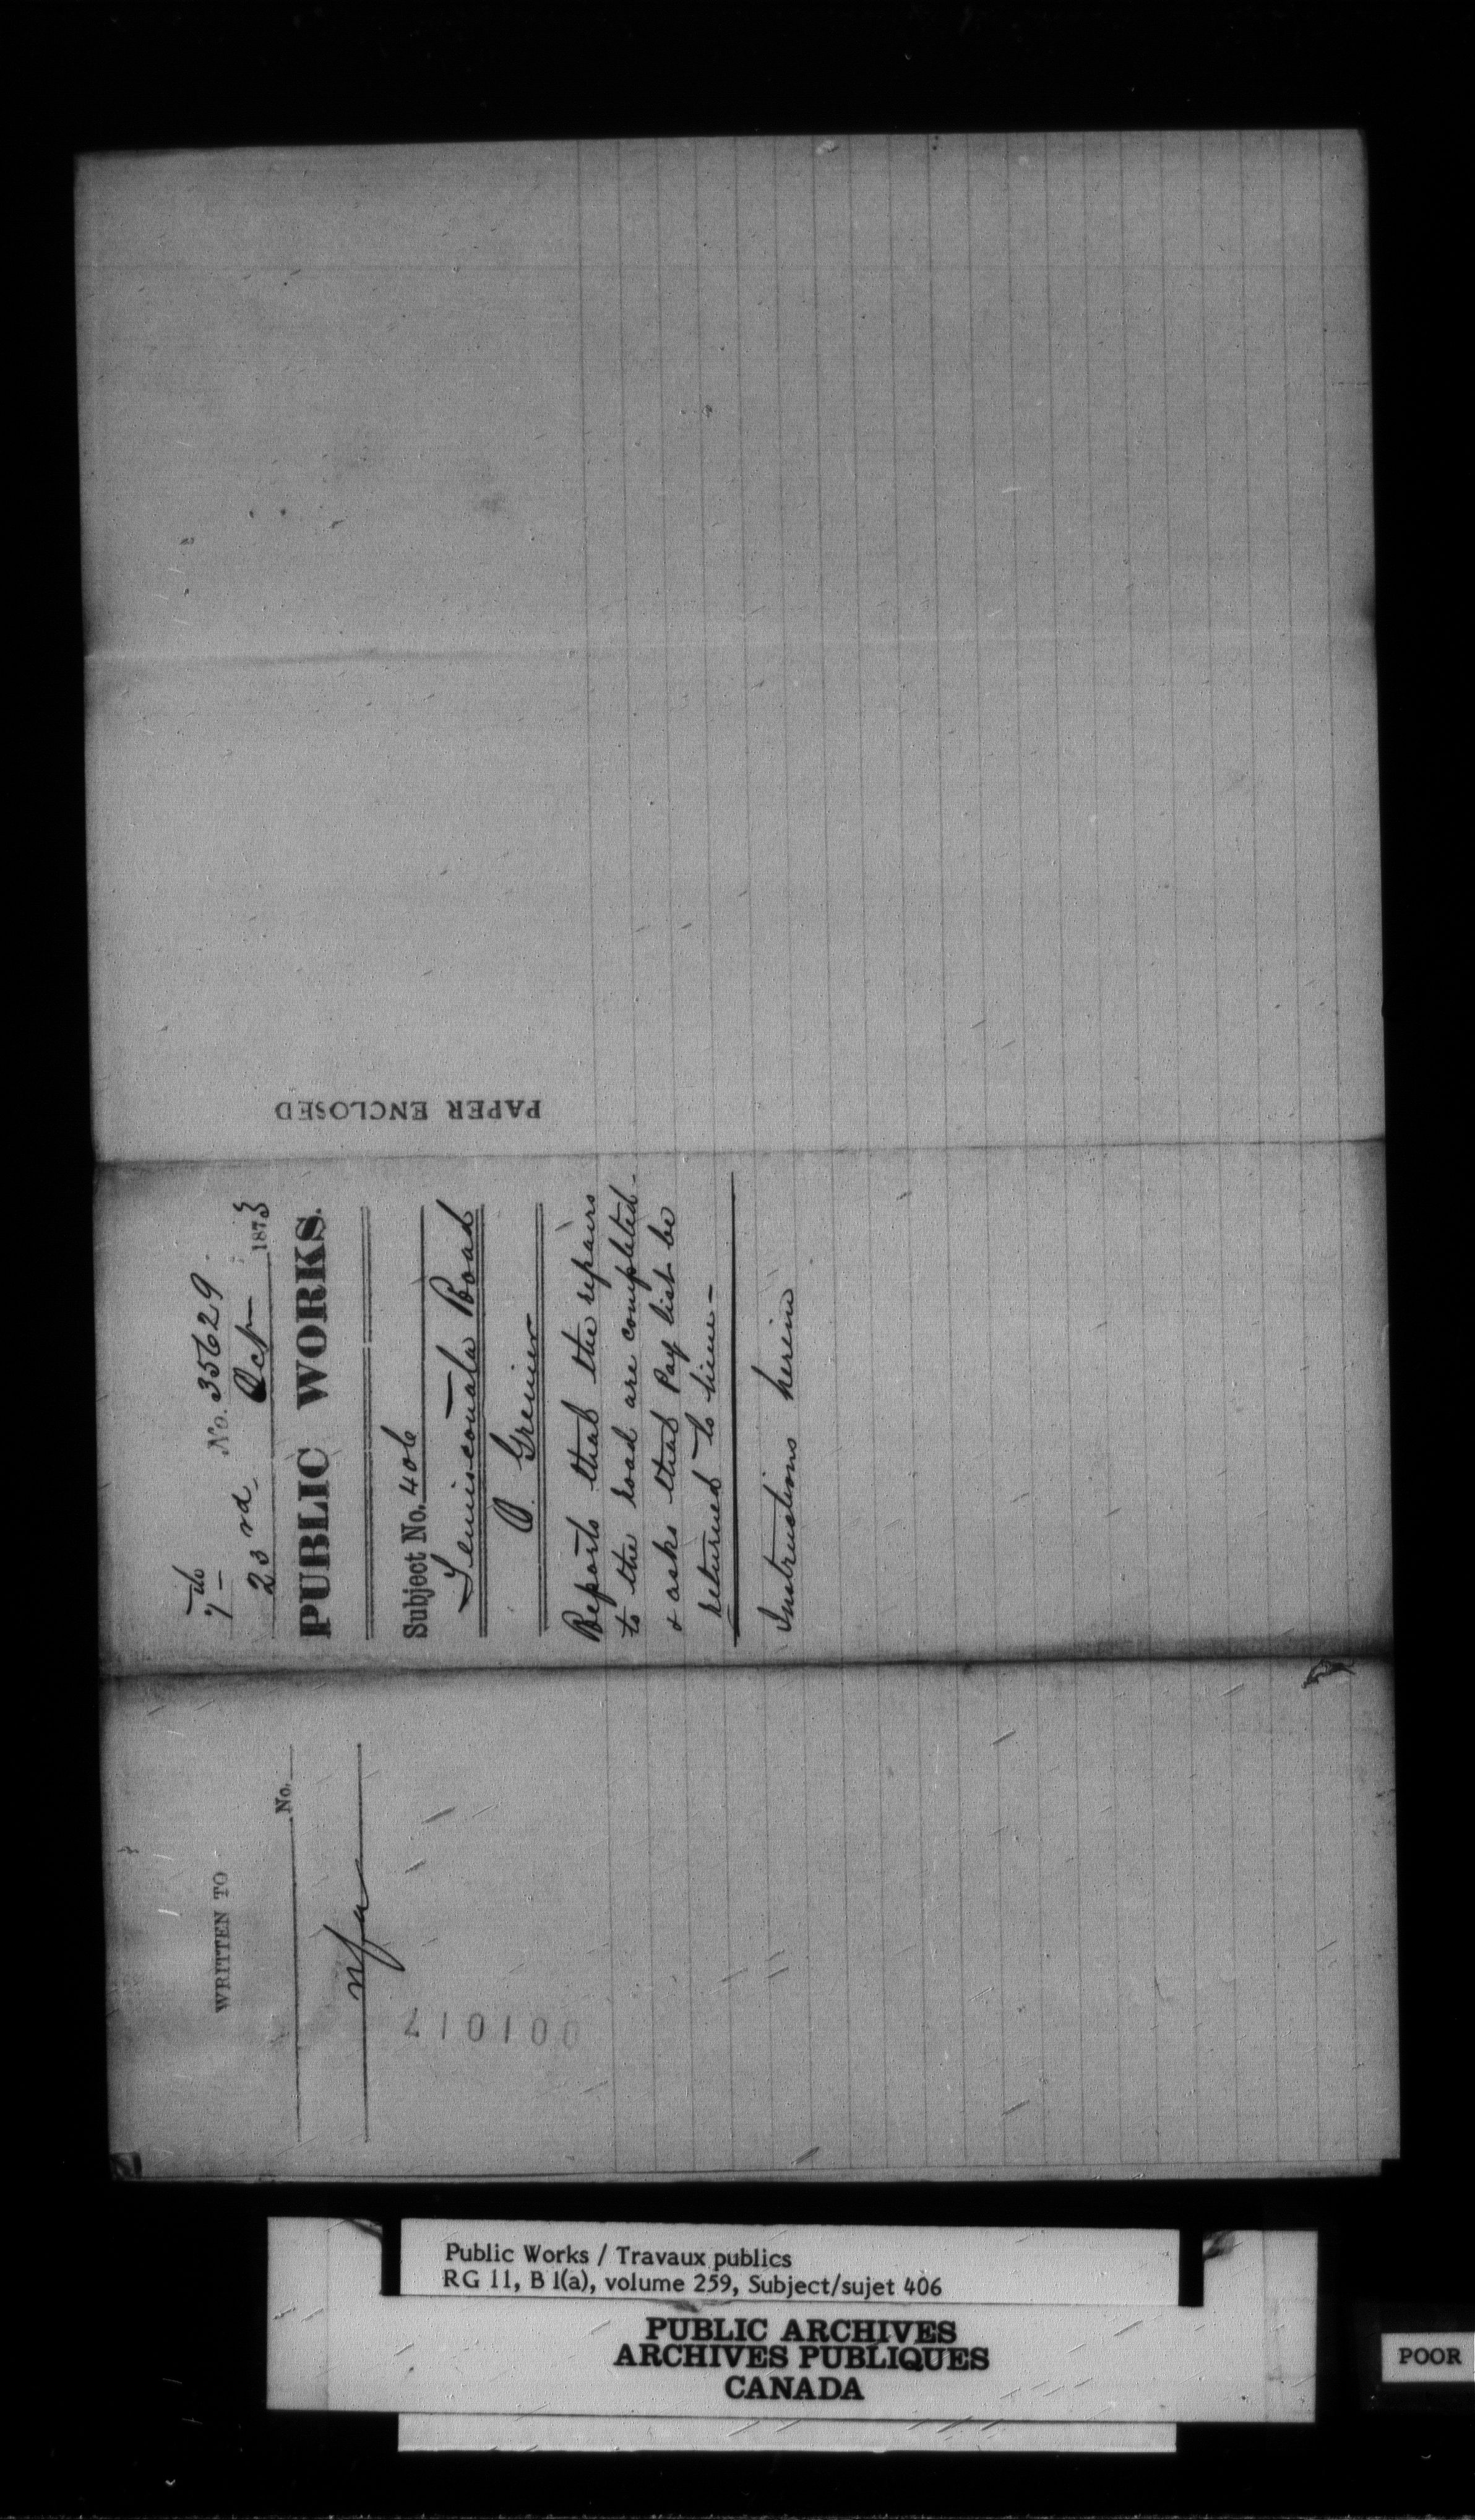 No. 35629
23rd Oct 1873
PUBLIC WORKS.
Subject No. 406
Temiscouata Road
Grenier
Reports that the repairs
to the road are completed -
& asks that Pay list be
returned to him -
Instructions herein
PAPER ENCLOSED
WRITTEN TO
No.
nfa
001017
Public Works / Travaux publics
RG 11, B 1(a), volume 259, Subject/sujet 406
PUBLIC ARCHIVES
ARCHIVES PUBLIQUES
CANADA
POOR